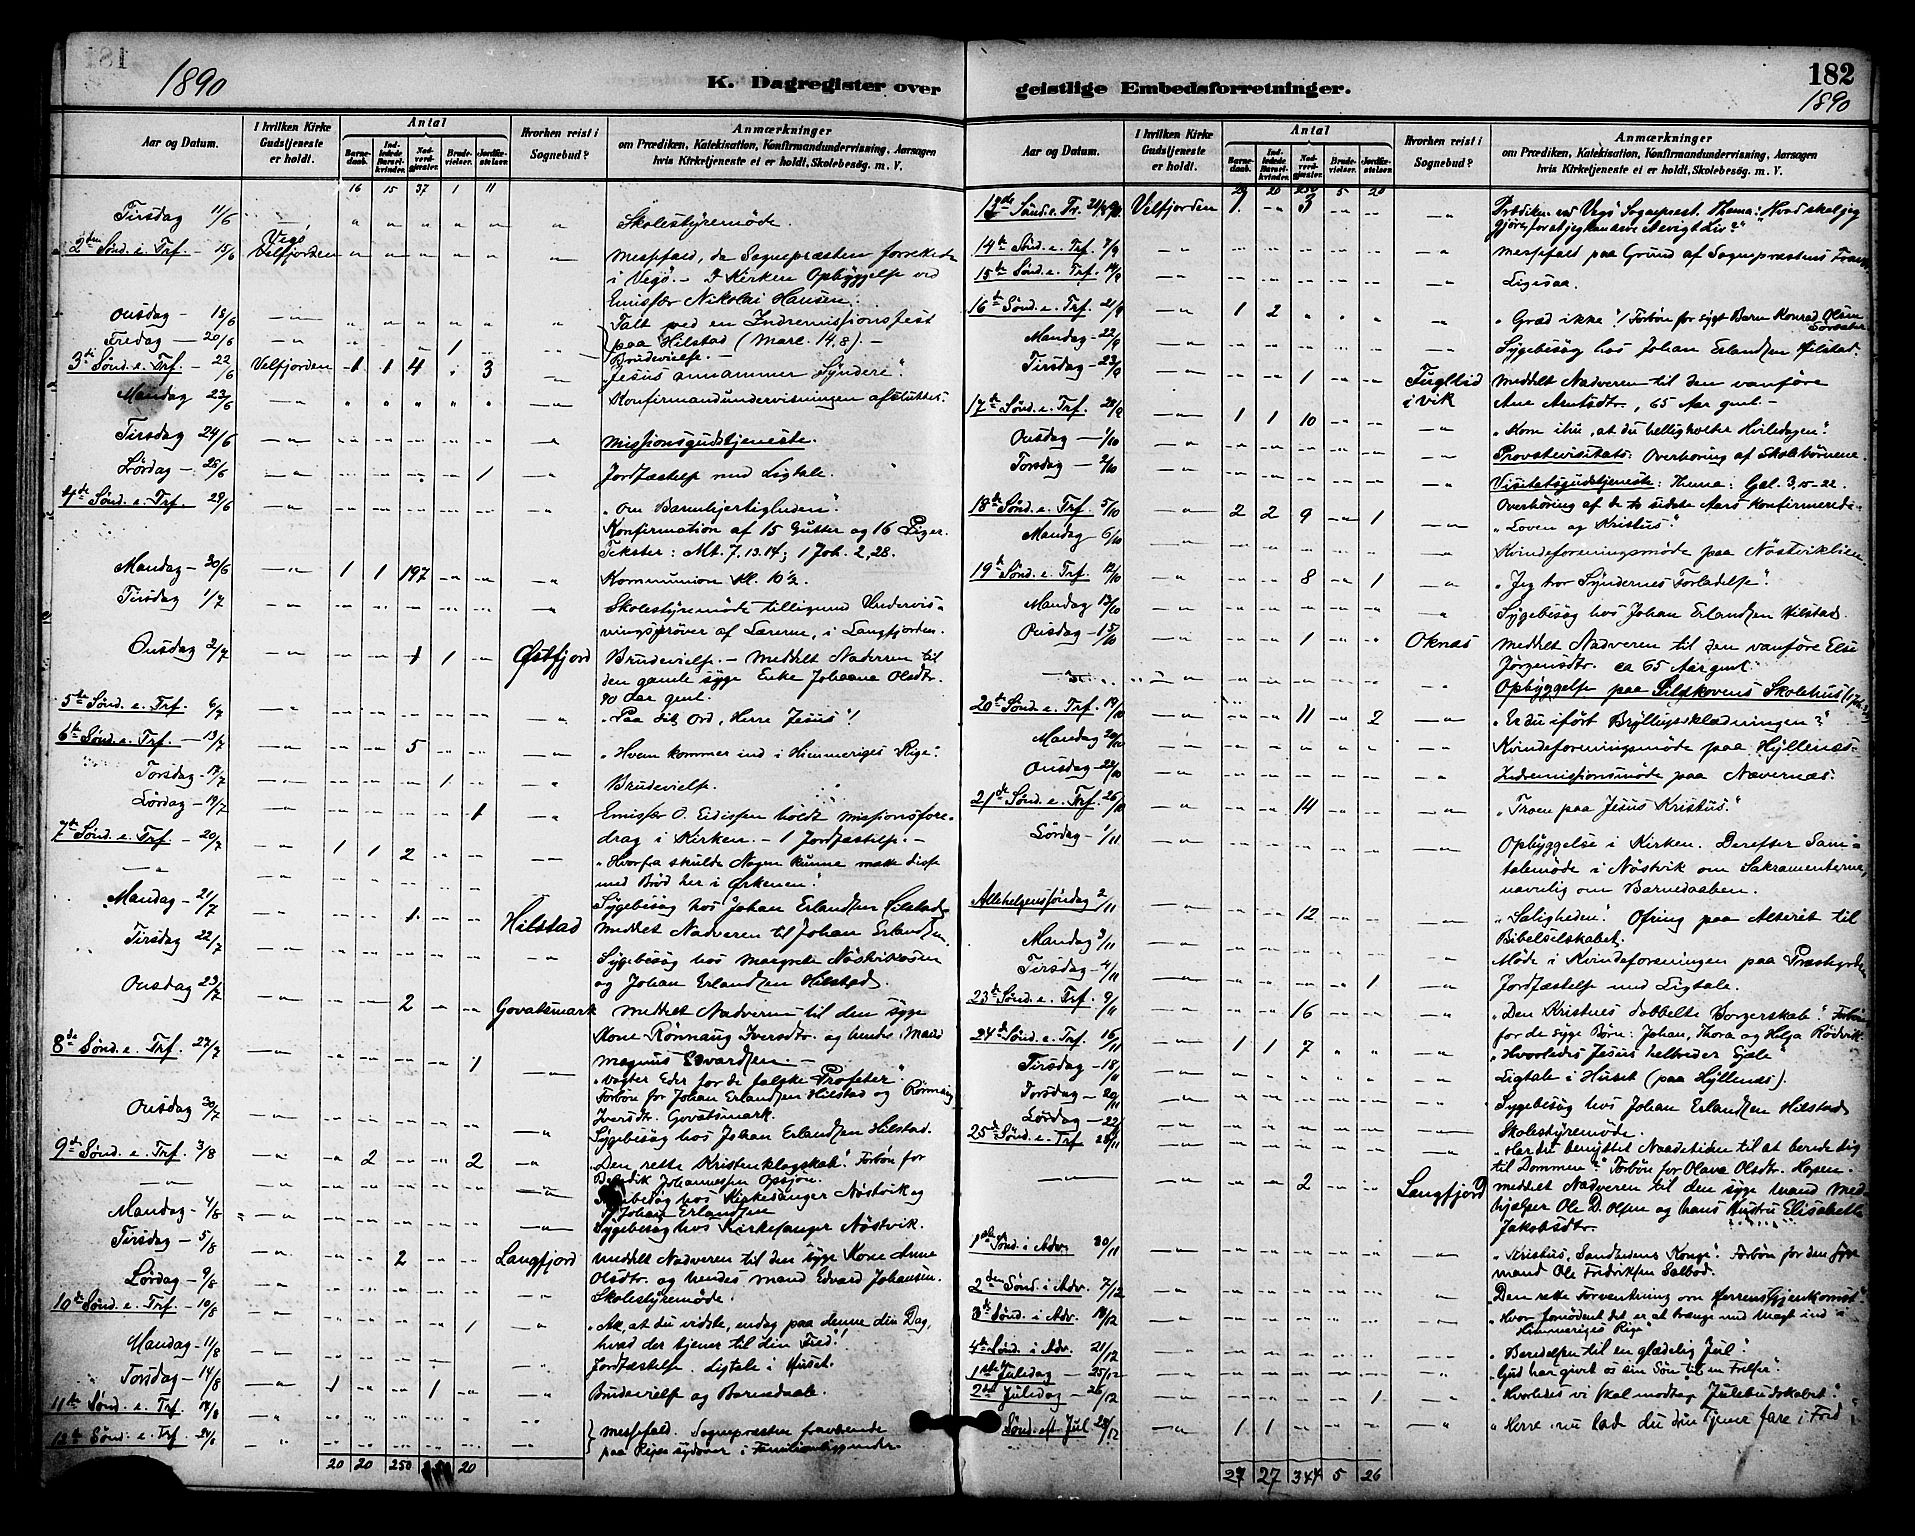 181
1890
K. Dagregister over
Aar og Datum.
I hvilken Kirke Gudstjeneste er holdt.
Antal
Barne-daab.
Ind-ledede Barsel-kvinder.
Nad-verd-gjester.
Brude-vielser.
Jordfæ-stelser.
Hvorhen reist i Sognebud?
Anmærkninger
om Prædiken, Katekisation, Konfirmandundervisning, Aarsagen
hvis Kirketjeneste ei er holdt, Skolebesøg. m. V.
16 15 37 1 11
Tirsdag 11/6 Skolestyremöde.
2den Sönd. e. Trf. 15/6 Vegö Velfjorden Messefald, da Sognepræsten forrettede
i Vegö. – I Kirken Opbyggelse ved
Emissær Nikolai Hansen.
Onsdag – 18/6 Talt ved en Indremissionsfest
Fredag – 20/6 1 paa Hilstad (Marc. 14.8). –
Brudevielse. –
3die Sönd. e. Trf. – 22/6 Velfjorden 1 1 4 3 "Jesus annammer Syndere".
Mandag 23/6 Konfirmandundervisningen afsluttet.
Tirsdag 24/6 Missionsgudstjeneste.
Lördag – 28/6 1 Jordfæstelse med Ligtale.
4de Sönd. e. Trf. 29/6 "Om Barmhjertigheden".
Konfirmation af 15 Gutter og 16 Piger.
Tekster: Mt. 7.13.14; 1 Joh. 2,28.
Mandag – 30/6 1 1 197 Kommunion Kl. 10½.
Tirsdag 1/7 Skolestyremöde tilligemed Undervis-
ningspröver af Lærerne, i Langfjorden.
Onsdag 2/7 1 1 Østfjord Brudevielse. – Meddelt Nadveren til
den gamle syge Enke Johanna Olsdtr.
90 Aar gml.
5te Sönd. e. Trf. 6/7 "Paa dit Ord, Herre Jesus"!
6te Sönd. e. Trf. – 13/7 5 "Hvem kommer ind i Himmeriges Rige".
Torsdag – 17/7 1 Brudevielse.
Lördag – 19/7 1 Emissær O. Eidissen holdt Missionsfore-
drag i Kirken. – 1 Jordfæstelse. –
7de Sönd. e. Trf. – 20/7 1 1 2 "Hvorfra skulde Nogen kunne mætte disse
med Bröd her i Ørkenen".
Mandag – 21/7 1 Hilstad Sygebesög hos Johan Erlandsen Hilstad.
Meddelt Nadveren til Johan Erlandsen.
Tirsdag 22/7 Sygebesög hos Margrete
og Johan Erlandsen Hilstad.
Onsdag 23/7 2 Govatsmark Meddelt Nadveren til den syge
Kone Rönnaug Iversdtr. og hendes Mand
Magnus Edvardsen. –
8de Sönd. e. Trf. 27/7 1 "Vogter Eder for de falske Profeter"
Forbön for Johan Erlandsen Hilstad og Rönnaug
Iversdtr. Govatsmark.
Onsdag 30/7 Sygebesög hos Johan Erlandsen Hilstad.
9de Sönd. e. Trf. 3/8 2 2 "Den rette Kristenklogskab". Forbön for
Johannessen
hos Kirkesanger Nöstvik og
Johan Erlandsen
Mandag – 4/8 Sygebesög hos Kirkesanger Nöstvik.
Tirsdag – 5/8 2 Langfjord Meddelt Nadveren til den syge Kone Anne
Olsdtr. og hendes Mand Edvard Johansen.
Lördag – 9/8 Skolestyremöde.
10de Sönd. e. Trf. – 10/8 1 "Ak, at du vidste, endog paa denne din Dag,
hvad der tjener til din Fred"!
Mandag – 11/8 Jordfæstelse. Ligtale i Huset.
Torsdag – 14/8 1 1 Brudevielse og Barnedaab.
11te Sönd. e. Trf. 17/8 Messefald. Sognepræsten fraværende
12te Sönd. e. Trf. 24/8 paa Reise sydover i Familieanliggender.
20 20 250 20
182
1890
geistlige Embedsforretninger.
Aar og Datum.
I hvilken Kirke Gudstjeneste er holdt.
Antal
Barne-daab.
Ind-ledede Barsel-kvinder.
Nad-verd-gjester.
Brude-vielser.
Jordfæ-stelser.
Hvorhen reist i Sognebud?
Anmærkninger
om Prædiken, Katekisation, Konfirmandundervisning, Aarsagen
hvis Kirketjeneste ei er holdt, Skolebesøg. m. V.
20 20 250 5 20
13de Sönd. e. Tr. Velfjorden 3 Prædiken ved Vegö Sogneprest. Thema: "Hvad skal jeg
gjöre, for at jeg kan arve det evigt Liv?"
14de Sönd. e. Trf. 7/9 Messefald paa Grund af Sognepræstens Fravær
15de Sönd. e. Trf. 14/9 Ligesaa.
16de Sönd. e. Trf. 21/9 1 2 "Græd ikke"! Forbön for sygt Barn Konrad Olsen
Mandag – 22/9 Sygebesög hos Johan Erlandsen Hilstad.
Tirsdag – 23/9 1 Fuglli i vik Meddelt Nadveren til den vanföre
Ane Arntsdtr, 65 Aar gml. –
17de Sönd. e. Trf. 28/9 1 1 10 "Kom ihu, at du helligholder Hviledagen".
Onsdag – 1/10 Provstevisitats: Overhöring af Skolebörnene.
Torsdag – 2/10 Visitatsgudstjeneste: Thema: Gal. 3. 15-22.
Overhöring af de to sidste Aars Konfirmerede.
18de Sönd. e. Trf. 5/10 2 2 9 1 "Loven og Kristus".
Mandag 6/10 Kvindeforeningsmöde paa Nöstviklien
19de Sönd. e. Trf. 12/10 8 1 "Jeg tror Syndernes Forladelse".
Mandag 13/10 Sygebesög hos Johan Erlandsen Hilstad.
Onsdag – 15/10 1 Oknæs Meddelt Nadveren til den vanföre Else
Jörgensdtr. ca 65 Aar gml.
Opbyggelse paa Skolehus
20de Sönd. e. Trf. 19/10 11 2 "Er du iført Bryllupsklædningen?"
Mandag – 20/10 Kvindeforeningsmöde paa Hyllenæs.
Onsdag – 22/10 Indremissionsmöde paa Nævernæs.
21de Sönd. e. Trf. 26/10 14 "Troen paa Jesus Kristus."
Lördag – 1/11 Opbyggelse i Kirken. Derefter Sam-
talemöde i Nöstvik om Sakramenterne,
navnlig om Barnedaaben.
Allehelgenssöndag 2/11 12 "Saligheden". Ofring paa Alteret til
Bibelselskabet.
Mandag 3/11 Möde i Kvindeforeningen paa Præstegrden
Tirsdag – 4/11 1 Jordfæstelse med Ligtale.
23de Sönd. e. Trf. 9/11 16 "Den Kristnes dobbelte Borgerskab". Forbön
for de syge Börn: Johan, Thora og Helga Rödvik.
24de Sönd. e. Trf. 16/11 1 1 7 "Hvorledes Jesus helbreder Sjæle"
Tirsdag – 18/11 Ligtale i Huset (paa Hyllenæs).
Torsdag – 20/11 Sygebesög hos Johan Erlandsen Hilstad
Lördag – 22/11 Skolestyremöde.
25de Sönd. e. Trf 23/11 "Har du benyttet Naadetiden til at berede dig
til Dommen?" Forbön for Olava Olsdtr. Hogen.
2 Langfjord Meddelt Nadveren til den syge Mand Med-
hjelper Ole D. Olsen og hans Hustru Elisabeth
Jakobsdtr.
1ste Sönd. i Adv. 30/11 "Kristus, Sandhedens Konge". Forbön for den syge
Mand Ole Fredriksen Salbod.
2den Sönd. i Adv. 7/12 "Den rette Forventning om Herrens Gjenkomst".
3de Sönd. i Adv. 14/12 "Hvor fornödent det er at trænge med Magt ind i
Himmeriges Rige"
4de Sönd. i Adv. 21/12 "Beredelsen til en glædelig Jul".
1ste Juledag – 25/12 "Gud har givet os sin Sön til en Frelser".
2den Juledag – 26/12 1 "Hvorledes vi skal modtage Julebudskabet".
Sönd. eft. Jul 28/12 1 1 "Herre nu lad du din Tjener fare i Fred"
27 27 344 5 26